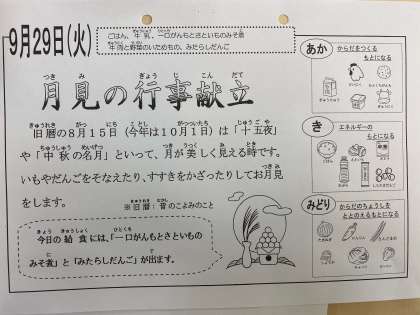 9月29日(火)
ごはん、牛乳、一口がんもとさといものみそ煮
牛肉と野菜のいためもの、みたらしだんご
月見の行事献立
旧暦の8月15日(今年は10月1日)は「十五夜」
や「中秋の名月」といって、月が美しく見える時です。
いもやだんごをそなえたり、すすきをかざったりしてお月見
をします。
※旧暦:昔のこよみのこと
今日の給食には、「一口がんもとさといもの
みそ煮」と「みたらしだんご」が出ます。
あか
からだをつくる
もとになる
き
エネルギーの
もとになる
みどり
からだのちょうしを
ととのえるもとになる